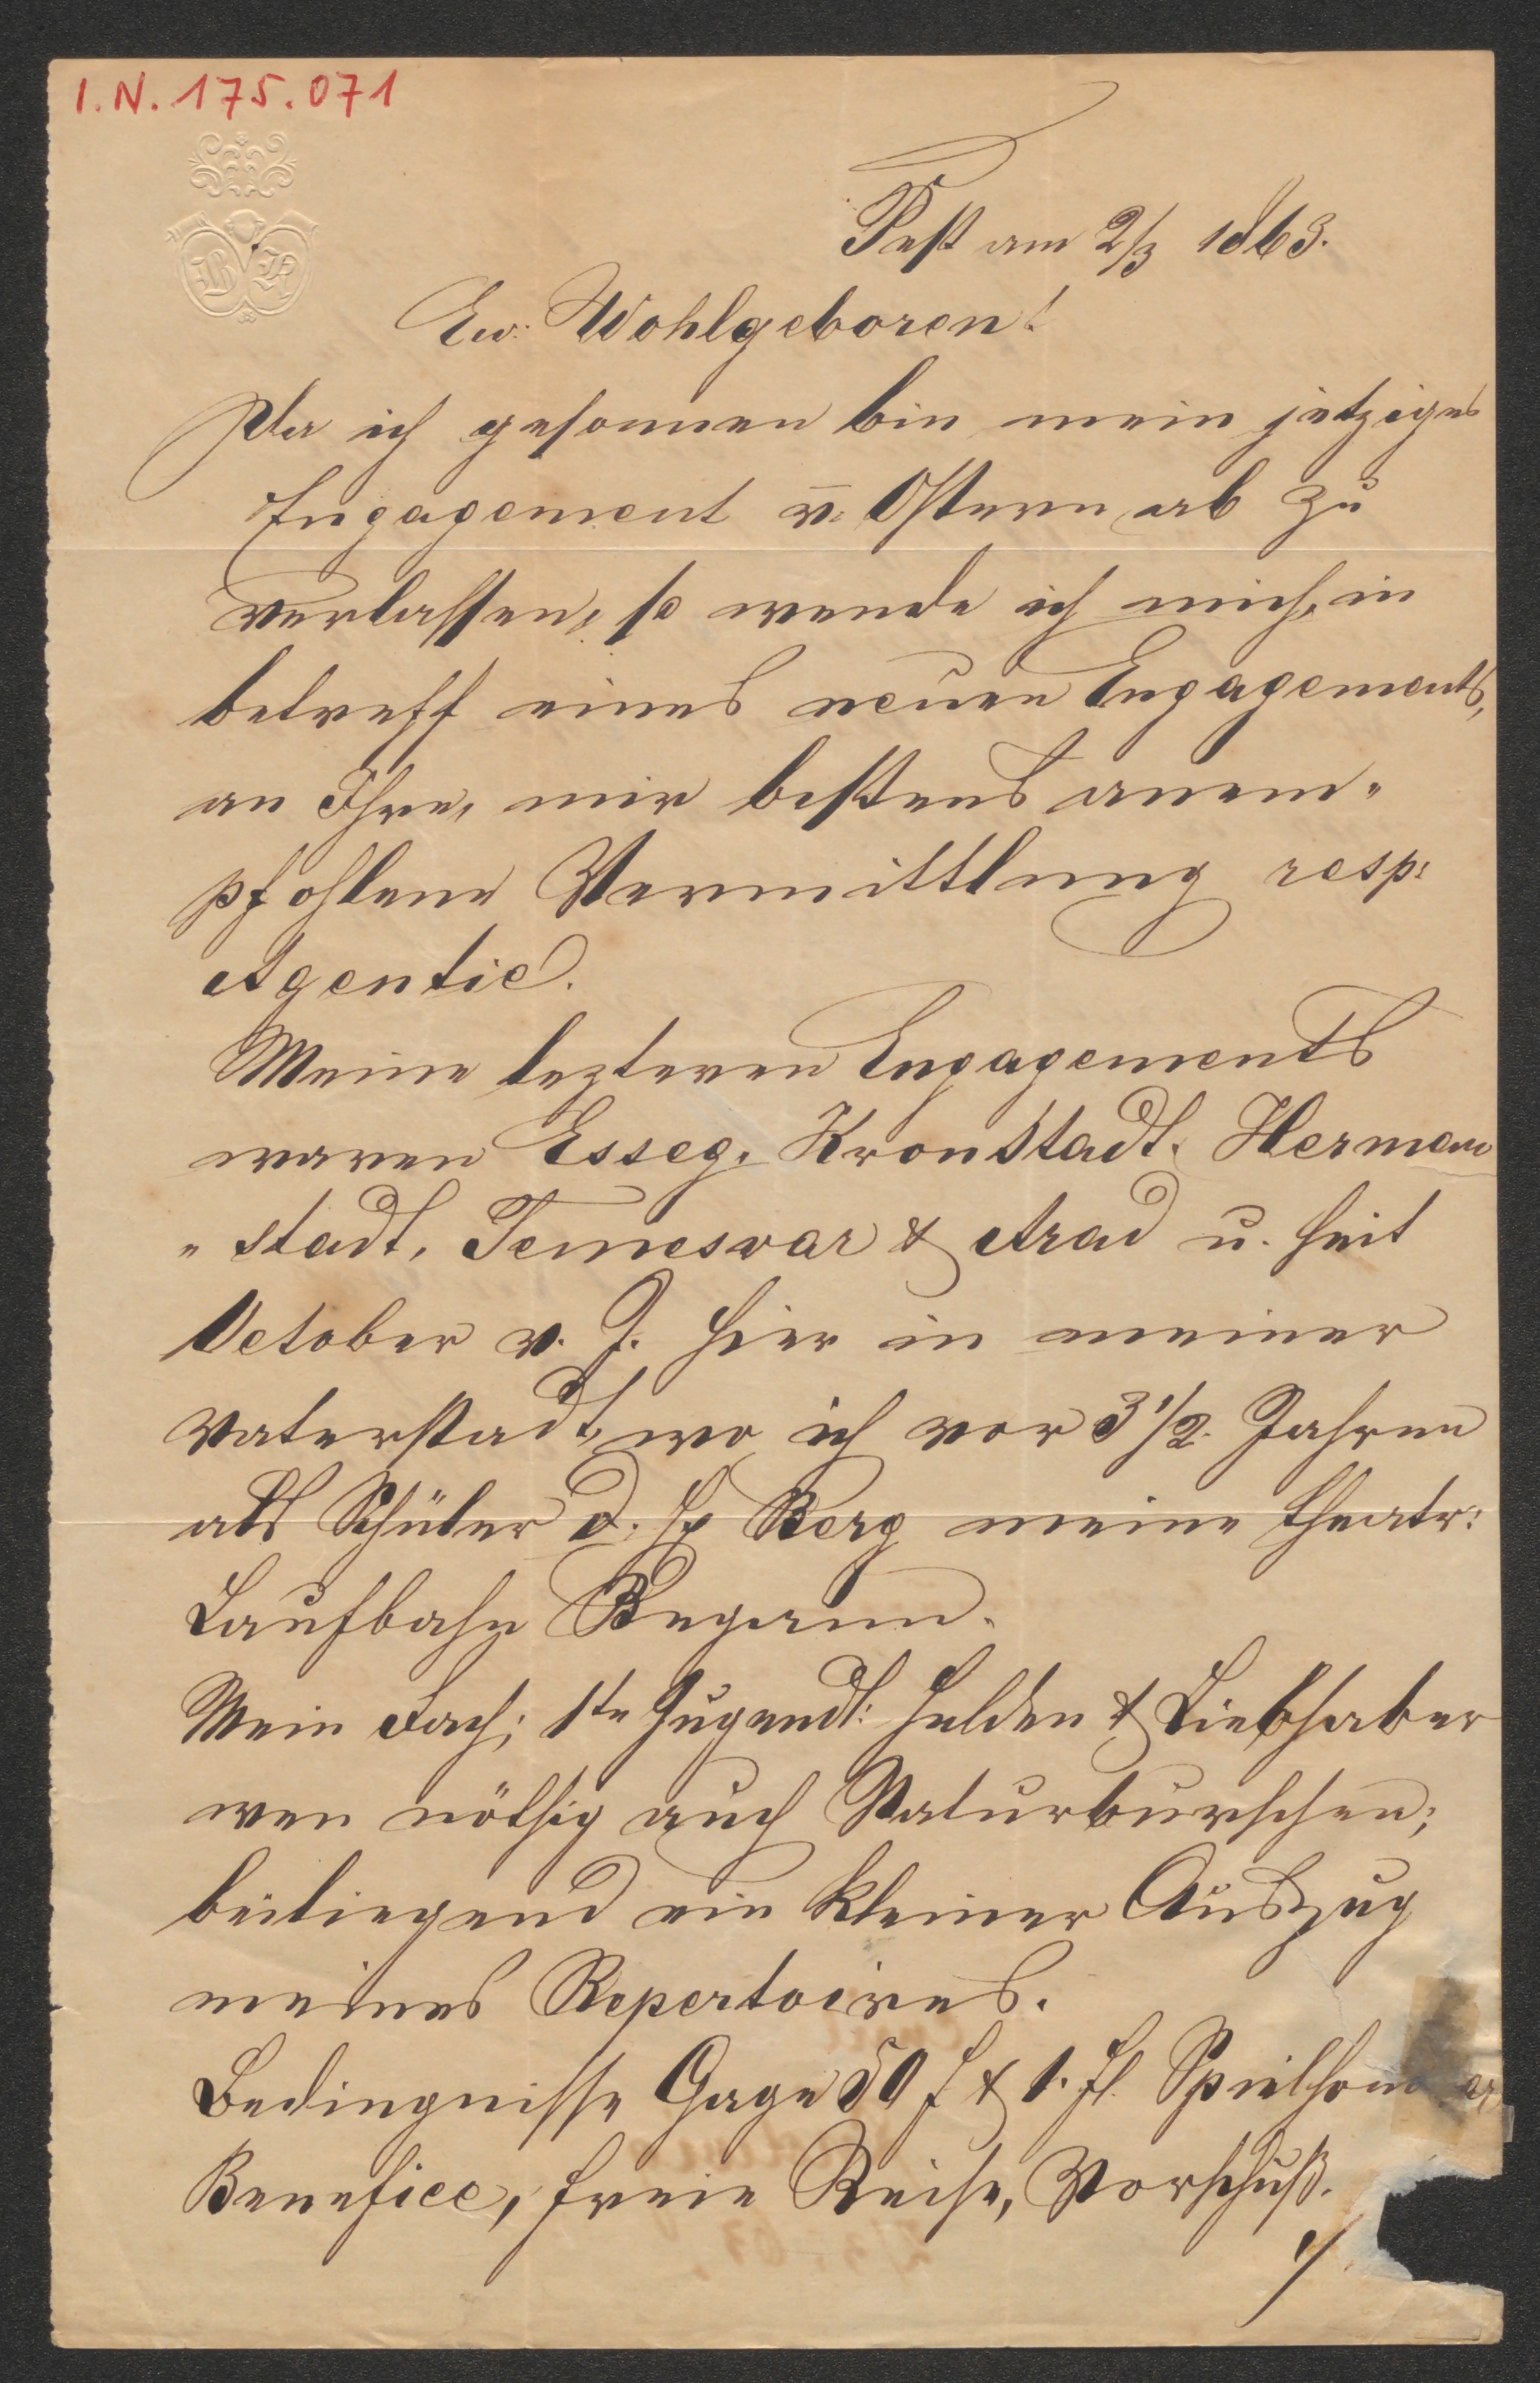 I.N. 175.071
Pest am 2/3 1863.
Ew: Wohlgeboren!
Da ich gesonnen bin mein jetziges
Engagement v: Ostern ab zu
verlassen, so wende ich mich, in
betreff eines neuen Engagements,
an Ihre, mir bestens anem-
pfohlene Vermittlung resp:
Agentie.
Meine lezteren Engagements
waren Esseg, Kronstadt, Herman
"stadt, Temesvar & Arad u. seit
October v. J. hier in meiner
Vaterstadt, wo ich vor 3 1/2 Jahren
als Schüler d. H Berg meine theatr:
Laufbahn Begann.
Mein Fach; 1te Jugendl: Helden & Liebhaber
wen nöthig auch Naturburschen;
beiliegend ein kleiner Auszug
meines Repertoires.
Bedingnisse Gage 50 f & 1. fl. Spielhonorar
Benefice, freie Reise, Vorschuß.
./.